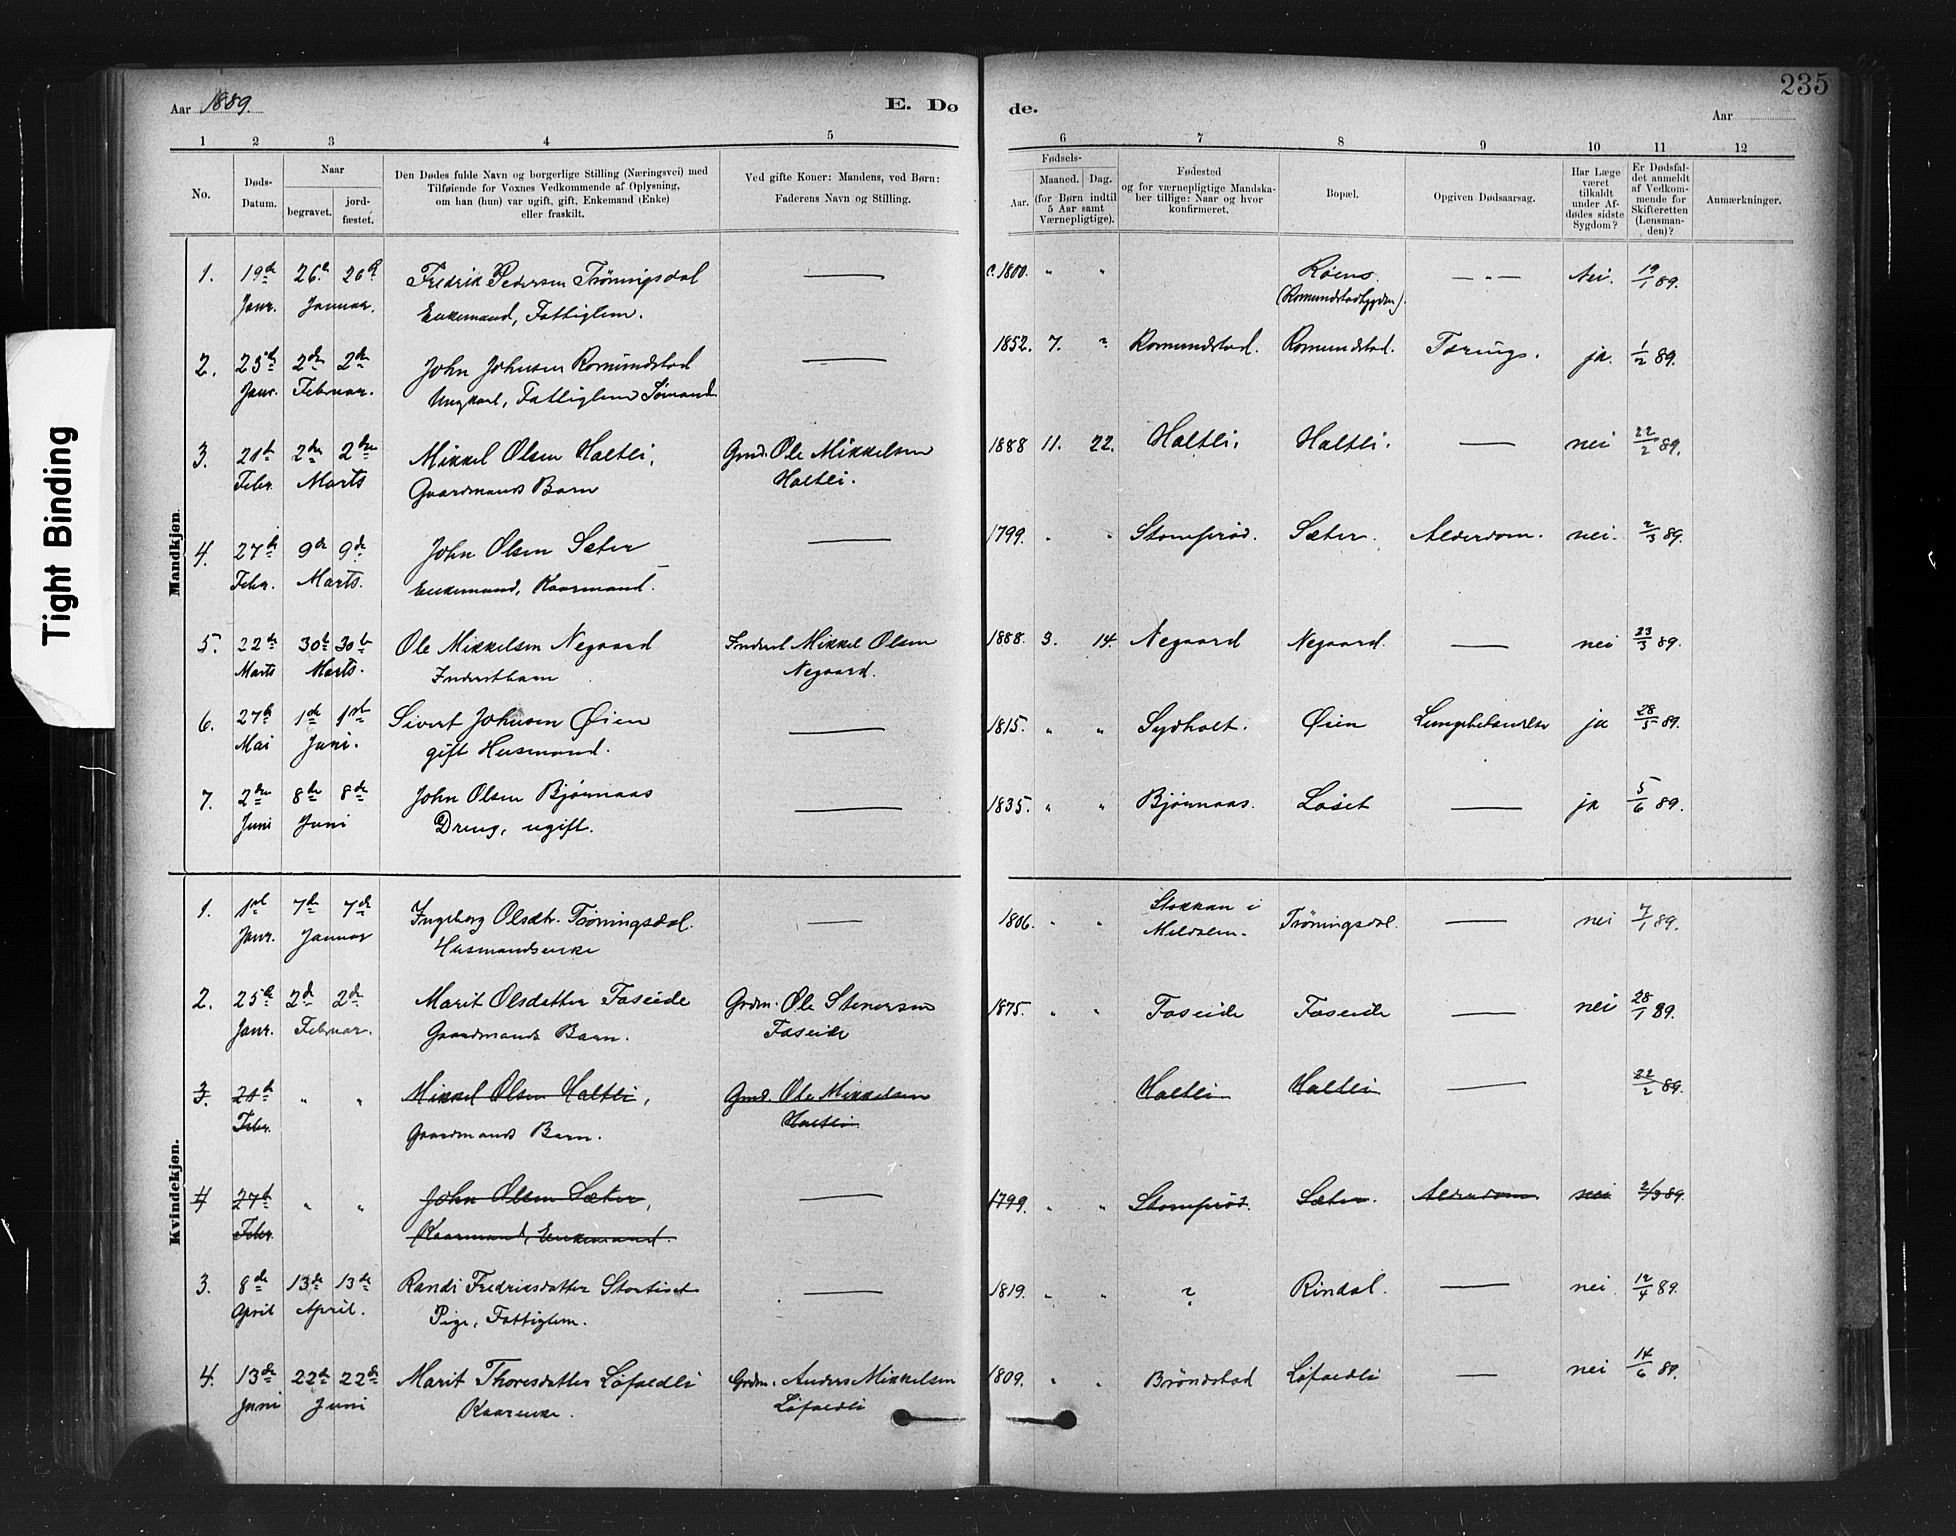 235
Aar 1889.
E. Dø
de.
Aar
1 2 3 4 5 6 7 8 9 10 11 12
No.
Døds-Datum.
Naar
begravet.
jord-fæstet.
Den Dødes fulde Navn og borgerlige Stilling (Næringsvei) med
Tilføiende for Voxnes Vedkommende af Oplysning,
om han (hun) var ugift, gift, Enkemand (Enke)
eller fraskilt.
Ved gifte Koner: Mandens, ved Børn:
Faderens Navn og Stilling.
Fødsels-
Aar.
Maaned. Dag.
(for Børn indtil
5 Aar samt
Værnepligtige).
Fødested
og for værnepligtige Mandska-
ber tillige: Naar og hvor
konfirmeret.
Bopæl.
Opgiven Dødsaarsag.
Har Læge
været
tilkaldt
under Af-
dødes sidste
Sygdom?
Er Dødsfal-
det anmeldt
af Vedkom-
mende for
Skifteretten
(Lensman-
den)?
Anmærkninger.
Tight Binding
Mandkjøn.
1. 19de 26de 26de Fredrik Pedersen Trøningsdal — c. 1800. " " Røens. — " — Nei. 19/1 89.
Janr. Januar. Enkemand, Fattiglem. (Romundstadbygden).
2. 25de 2den 2den John Johnsen Romundstad — 1852. 7. ? Romundstad. Romundstad. Tærings. ja. 1/2 89.
Janr. Februar. Ungkarl, Fattiglem Sømand.
3. 21de 2den 2den Mikkel Olsen Haltli, Gmd. Ole Mikkelsen 1888 11. 22. Haltli. Haltli. — nei 22/2 89.
Febr. Marts Gaardmands Barn Haltli.
4. 27de 9de 9de John Olsen Sæter — 1799. " " Stomprød. Sæter. Alderdom. nei. 2/3 89.
Febr. Marts. Enkemand, Kaarmand.
5. 22de 30te 30te Ole Mikkelsen Negaard Inderst Mikkel Olsen 1888. 3. 14. Negaard Negaard. — nei 23/3 89.
Marts Marts. Inderstbarn Negaard.
6. 27de 1ste 1ste Sivert Johnsen Øien — 1815. " " Sydhalt. Øien ja 28/5 89.
Mai Juni. gift Husmand.
7. 2den 8de 8de John Olsen Bjørnaas — 1835. " " Bjørnaas. Løset — ja 5/6 89.
Juni Juni Dreng, ugift.
Kvindekjøn.
1. 1ste 7de 7de Ingeborg Olsdtr. Trøningsdal. — 1806. " " Stokkan i Trøningsdal. — nei 7/1 89.
Janr. Januar Husmandsenke Meldalen.
2. 25de 2den 2den Marit Olsdatter Faseide Grdm. Ole Stenersen 1875. " " Faseide Faseide — nei 28/1 89.
Janr. Februar. Gaardmands Barn. Faseide
3. 21de " " Mikkel Olsen Haltli, Gmd. Ole Mikkelsen Haltli Haltli — 22/2 89.
Febr. Gaardmands Barn. Haltli
4 27de " " John Olsen Sæter, — 1799. " " Stomprød. Sæter. Alderdom nei 2/3 89.
Febr. Kaarmand, Enkemand.
3. 8de 13de 13de Randi Fredriksdatter — 1819. " " ? Rindal. — nei 12/4 89.
April April. Pige, Fattiglem.
4. 13de 22de 22de Marit Thoresdatter Løfaldli Grdm. Anders Mikkelsen 1809. " " Brøndstad Løfaldli — nei 14/6 89.
Juni Juni Kaarenke. Løfaldli